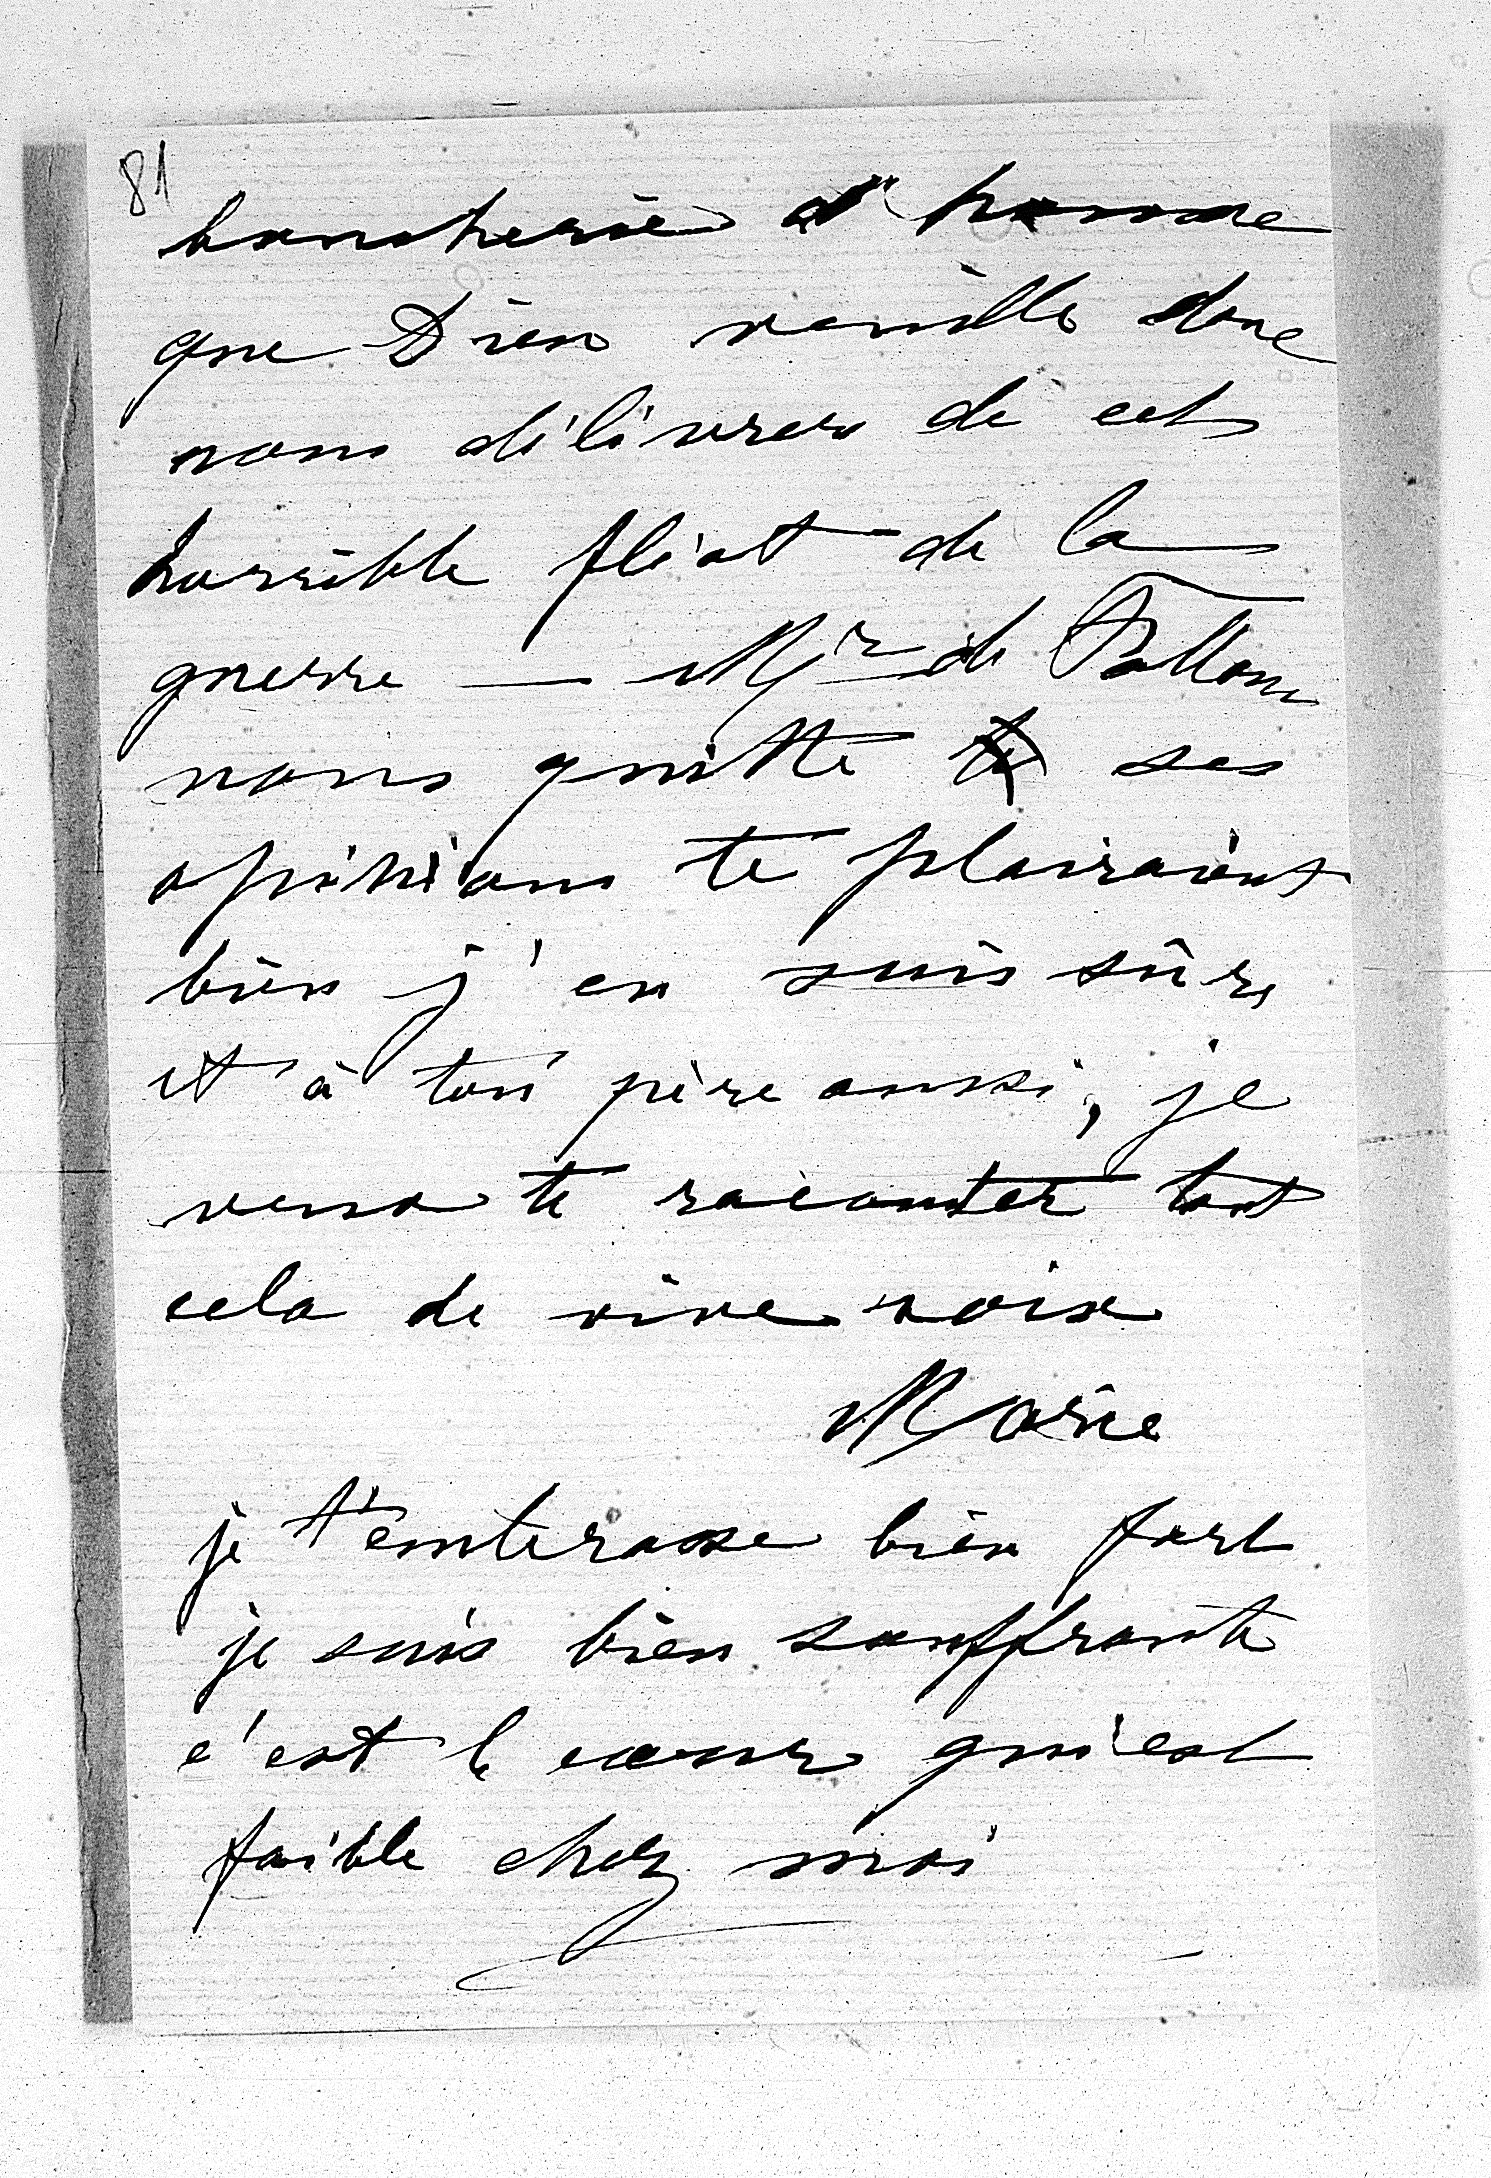 81
boucherie d'homme
que Dieu veuille donc
nous délivrer de cet
horrible fléat de la
guerre — Mr de
nous quitte ses
opinions te plairaient
bien j'en suis sûre
et à ton père aussi, je
venai te raconter tout
cela de vive voix
Marie
je t'embrasse bien fort
je suis bien souffrante
c'est le cœur qui est
faible chez moi